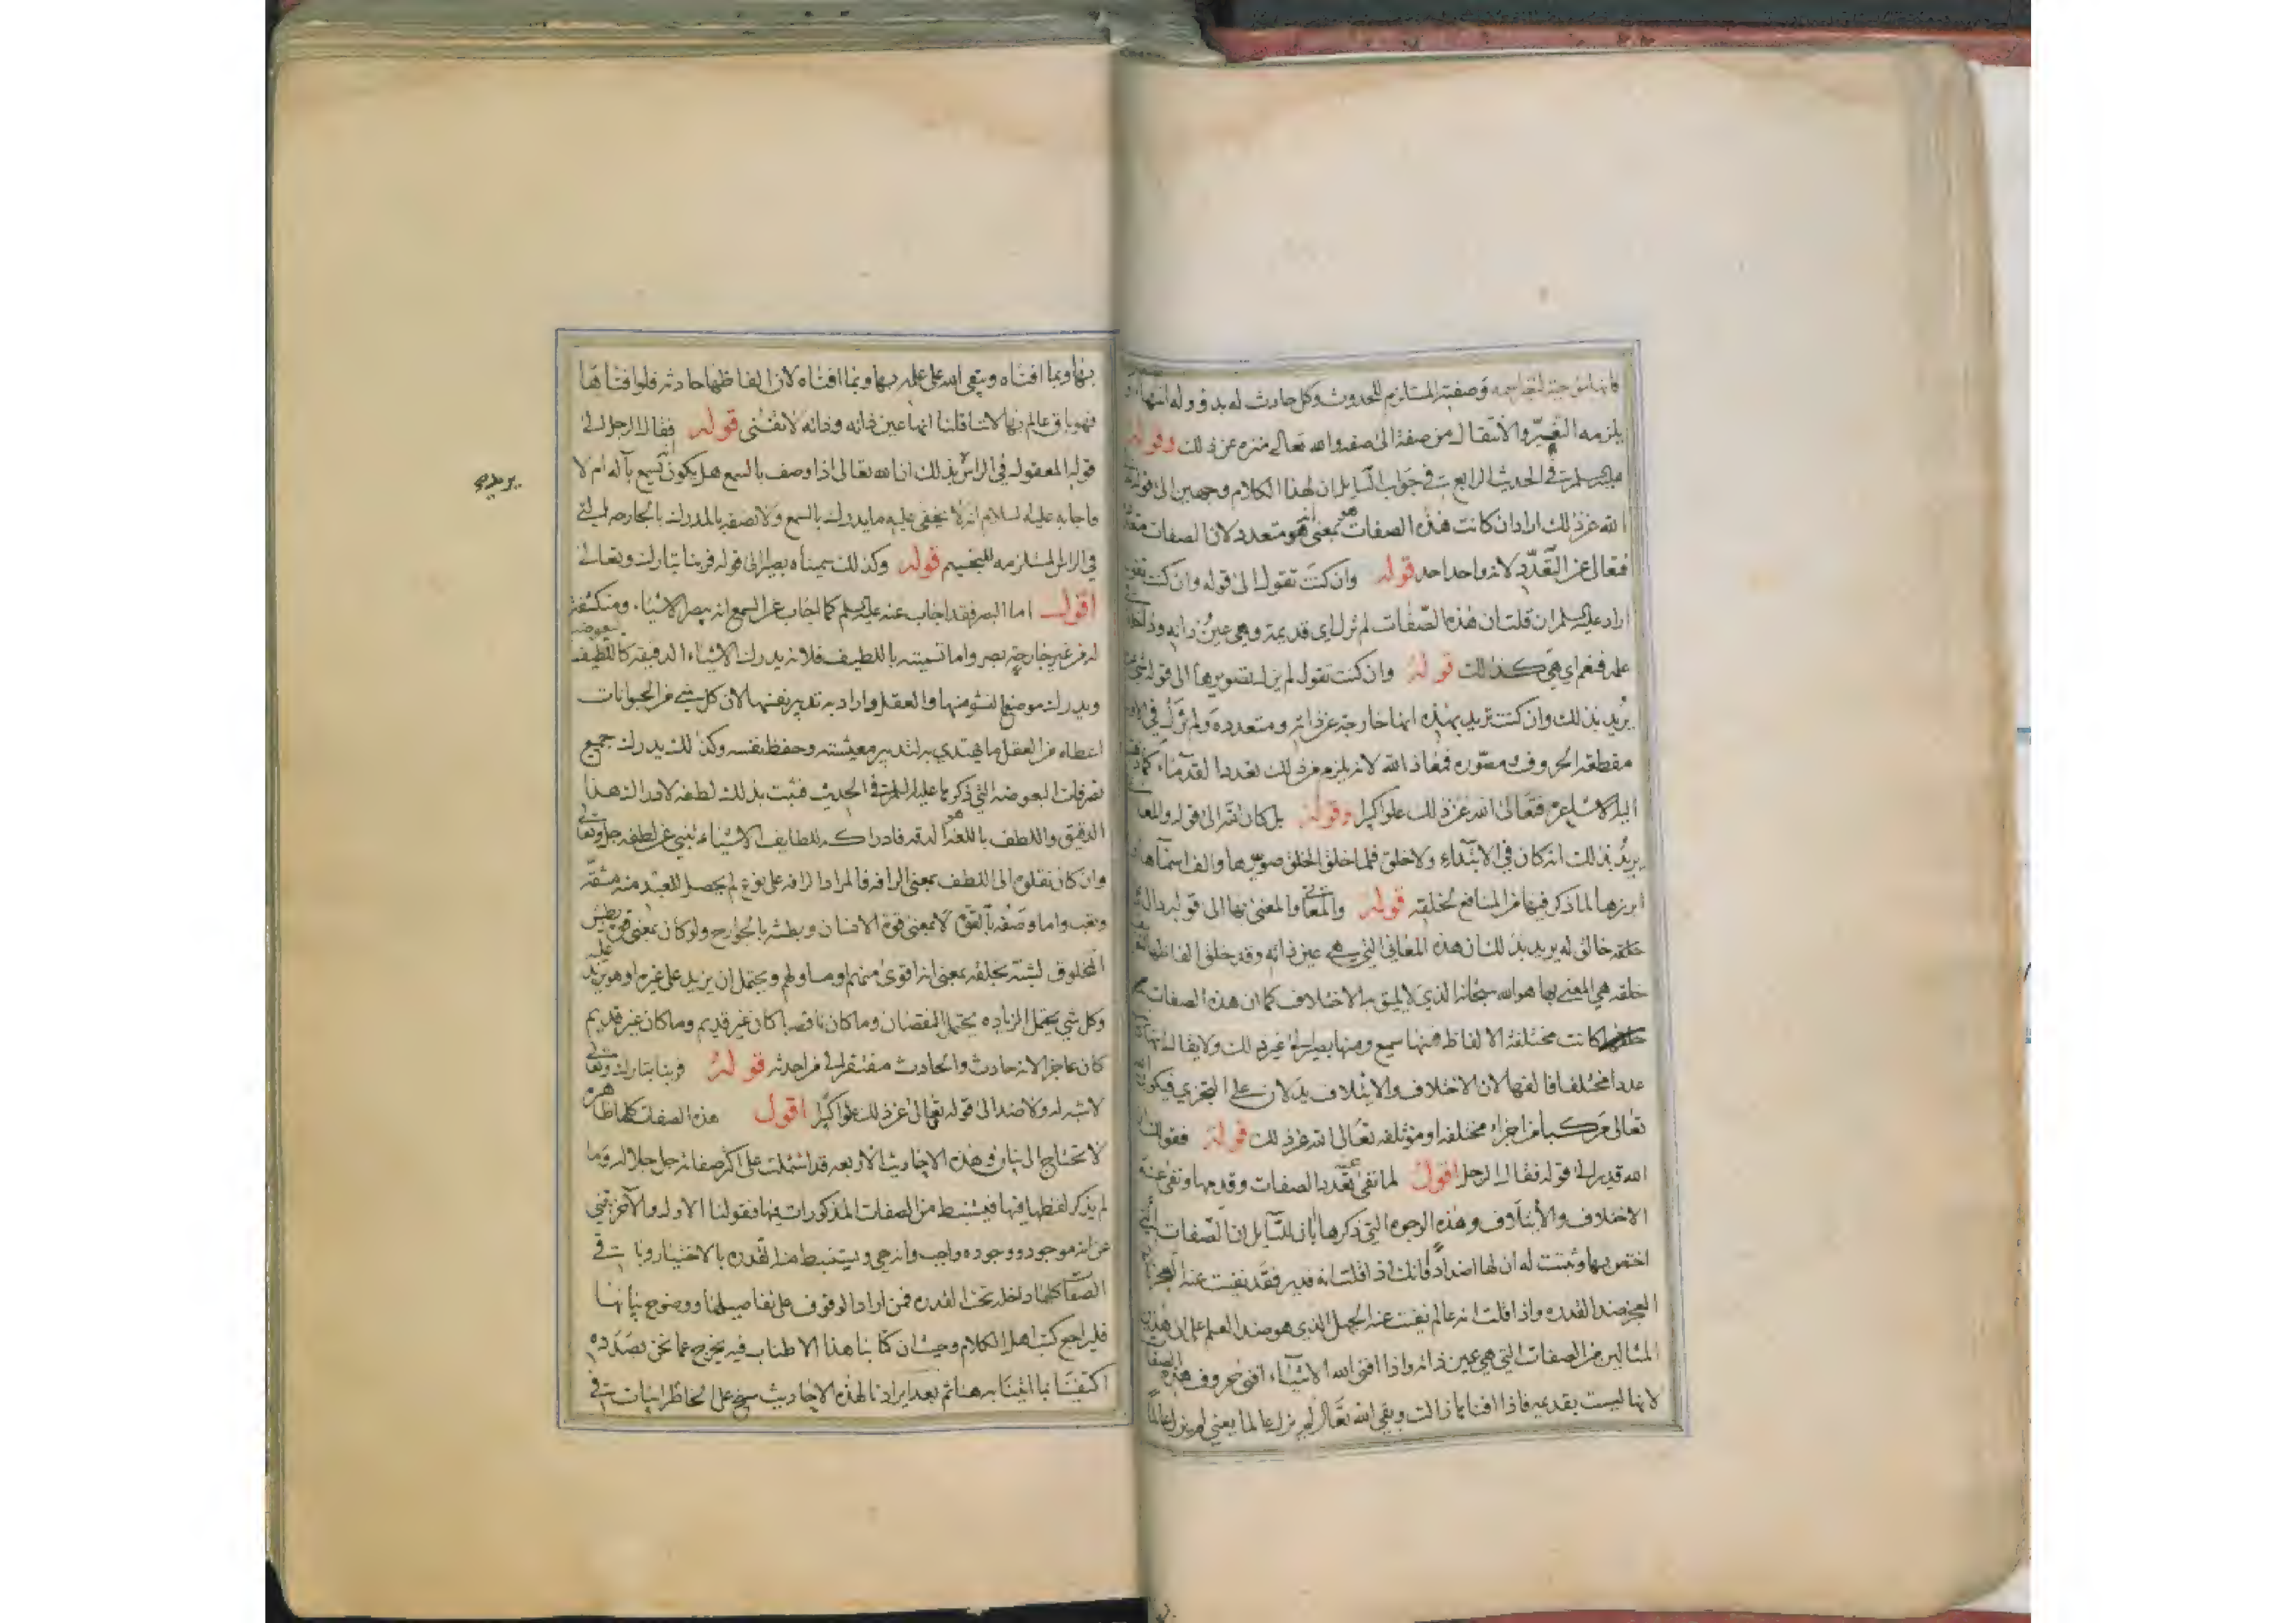 وصفته المستلزم للحدوث وكل حادث له بدؤ وله انتهاء
يلزمه التغير والانتقال من صفة الى صفه والله تعالى منزه عن ذلك وقوله
في الحديث الرابع في جواب السايل ان لهذا الكلام وجهين الى قوله
الله عن ذلك اراد ان كانت هذه الصفات هو بمعنى انه هو متعدد لان الصفات
فتعالى عن التعدد لانه واحد احد قوله وان كنت تقول الى قوله وان كنت تقول
اراد عليه السلم ان قلت ان هذه الصفات لم تزل اي قديمة وهي عين ذاته
علمه فنعم اي هي كذلك قوله وان كنت تقول لم يزل تصويرها الى قوله
يريد بذلك وان كنت تريد بهذه انها خارجة عن ذاته ومتعدده ولم تزل في
مقطعة الحروف مصوره فمعاذ الله لانه يلزم من ذلك تعدد القدماء كما
فتعالى الله عن ذلك علوا كبيرا وقوله بل كان الله الى قوله والمعا
يريد بذلك انه كان في الابتداء ولا خلق فلما خلق الخلق صورها والف اسمآها
ابرزها لما ذكر فيها من المنافع لخلقه قوله والمعاني والمعنى بها الى قوله
خلقه خالق له يريد بذلك ان هذه المعاني التي هي عين ذاته وقد خلق الفاظها
خلقه هي المعني بها هو الله سبحانه الذي لا يليق به الاختلاف كما ان هذه الصفات
كانت مختلفة الالفاظ فمنها سميع ومنها بصير الى غير ذلك ولا يقال انها
عددا مختلفا فالفها لان الاختلاف والايتلاف يدلان على التجزي فيكون
تعالى مركبا من اجزاء مختلفه او مؤتلفه تعالى الله عن ذلك قوله فقولك
الله قدير الى قوله فقال الرجل اقول لما نفى تعدد الصفات وقدمها ونفى عنه
الاختلاف والايتلاف وهذه الوجوه التي ذكرها بان للسايل ان الصفات التي
اختص بها وثبتت له ان لها اضداد فانك اذا قلت انه قدير فقد نفيت عنه العجز
العجز ضد القدره واذا قلت انه عالم نفيت عنه الجهل الذي هو ضد العلم على ان هذين
المثالين من الصفات التي هي عين ذاته واذا افنى الله الاشياء افنى حروف هذه الصفات
لانها ليست بقديمه فاذا افناها زالت وبقي الله تعالى لم يزل عالما يعني لم يزل عالما
بها وبما افناه وبقي الله على علمه بها وبما افناه لان الفاظها حادثه فلو افناها
فهو باق عالم بها لاننا قلنا انها عين ذاته وذاته لا تفنى قوله فقال الرجل الى
قوله المعقول في الراس يريد بذلك ان الله تعالى اذا وصف بالسمع هل يكون سميع بآله ام لا
فاجابه عليه السلام انه لا يخفى عليه ما يدرك بالسمع ولا نصفه بالمدرك بالجارحه التي
في الراس المستلزمه للتجسيم قوله وكذلك سميناه بصيرا الى قوله فربنا تبارك وتعالى
اقول اما البصر فقد اجاب عنه عليه السلم كما اجاب عن السمع انه يبصر الاشياء ومنكشفة
له من غير جارحة بصر واما تسميته باللطيف فلانه يدرك الاشياء الدقيقة كالبعوضه
ويدرك موضع النشو منها والعقل واراد به تدبير نفسها لان كل شي من الحيوانات
اعطاه من العقل ما يهتدي به لتدبير معيشته وحفظ نفسه وكذلك يدرك جميع
تصرفات البعوضه التي ذكرها عليه السلم في الحديث فثبت بذلك لطفه لادراك هذا
الدقيق واللطف باللغه هو الدقه فادراكه للطايف الاشياء ينبي عن لطفه جل وتعالى
وان كان نقلوه الى اللطف بمعنى الرافه فالمراد الرافه على نوع لم يحصل للعبد منه مشقه
وتعب واما وصفه بالقوه لا بمعنى قوة الانسان وبطشه بالجوارح ولو كان بمعنى قوة بطش
المخلوق لشبه بخلقه بمعنى انه اقوى منهم او مساو لهم ويحتمل ان يزيد على غيره او هو يزيد عليه
وكل شي يحتمل الزياده يحتمل النقصان وما كان ناقصا كان غير قديم وما كان غير قديم
كان عاجزا لانه حادث والحادث مفتقر الى من احدثه قوله فربنا تبارك وتعالى
لا شبه له ولا ضد الى قوله تعالى عن ذلك علوا كبيرا اقول هذه الصفات كلها ظاهره
لا تحتاج الى بيان وهذه الاحاديث الاربعه قد اشتملت على اكثر صفاته جل جلاله وما
لم يذكر لفظها فيها فيستنبط من الصفات المذكورات فيها فقولنا الاول والاخر ينبي
عن انه موجود ووجوده واجب وانه حي ويستنبط منه القدره بالاختيار وباقي
الصفات كلها داخله تحت القدره فمن اراد الوقوف على تفاصيلها ووضوح بيانها
فليراجع كتب اهل الكلام وحيث ان كتابنا هذا الاطناب فيه يخرج عما نحن بصدده
اكتفينا بما اثبتناه هنا ثم بعد ايرادنا لهذه الاحاديث سنح على الخاطر ابيات في